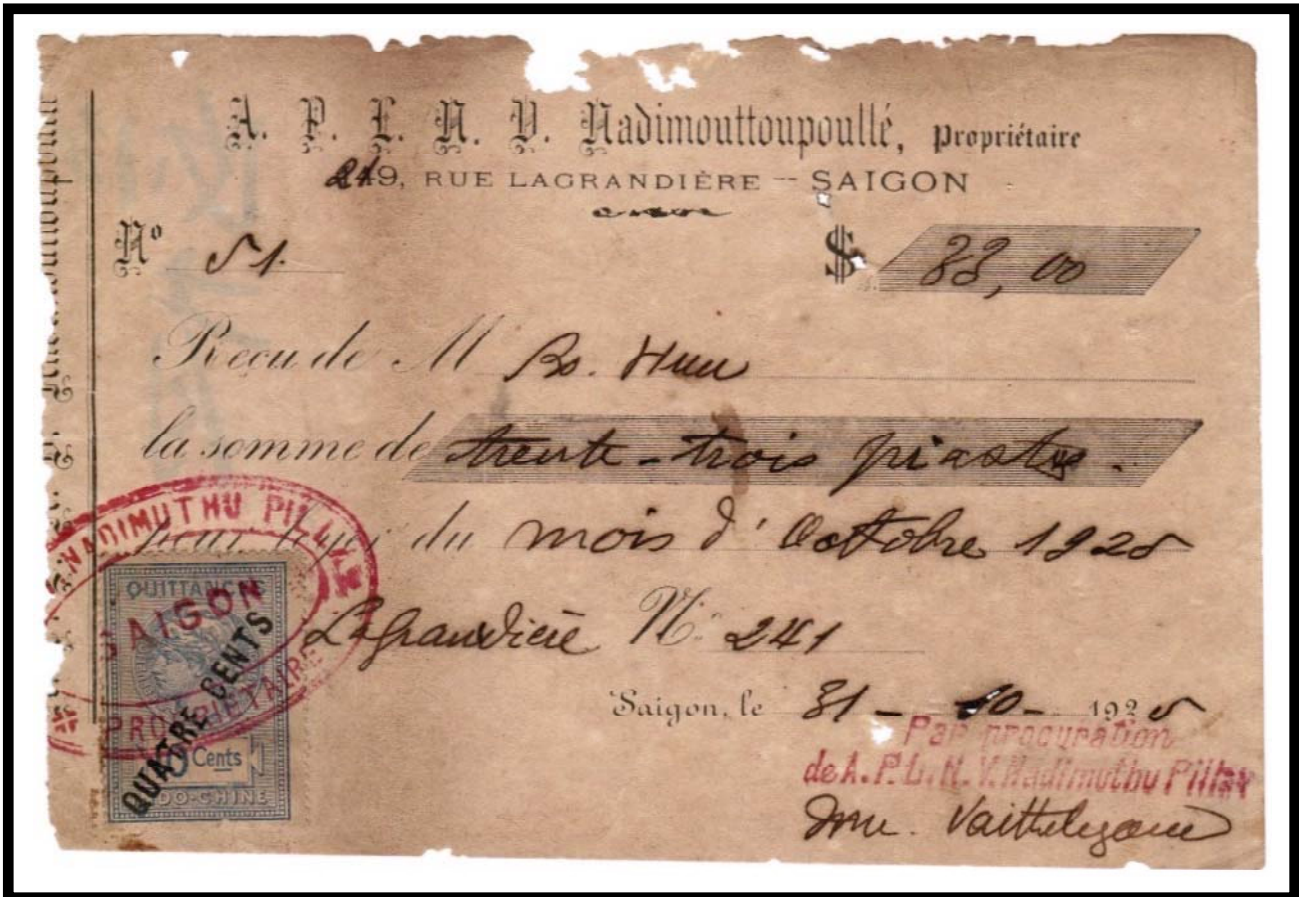 A. P. L. N. V. Nadimouttoupoullé, Propriétaire
249, RUE LAGRANDIÈRE -- SAIGON
Nº 51.
$ 33,00
Reçu de M Bs. Huu
la somme de trente-trois piastres.
pour loyer du mois d'Octobre 1925
Lagrandière Nº 241
Saigon, le 31 - 10 - 1925
Par procuration
de A. P. L. N. V. Nadimuthu Pillay
NADIMUTHU PILLAY
SAIGON
PROPRIÉTAIRE
QUITTANCES
QUATRE CENTS
Cents
INDO-CHINE